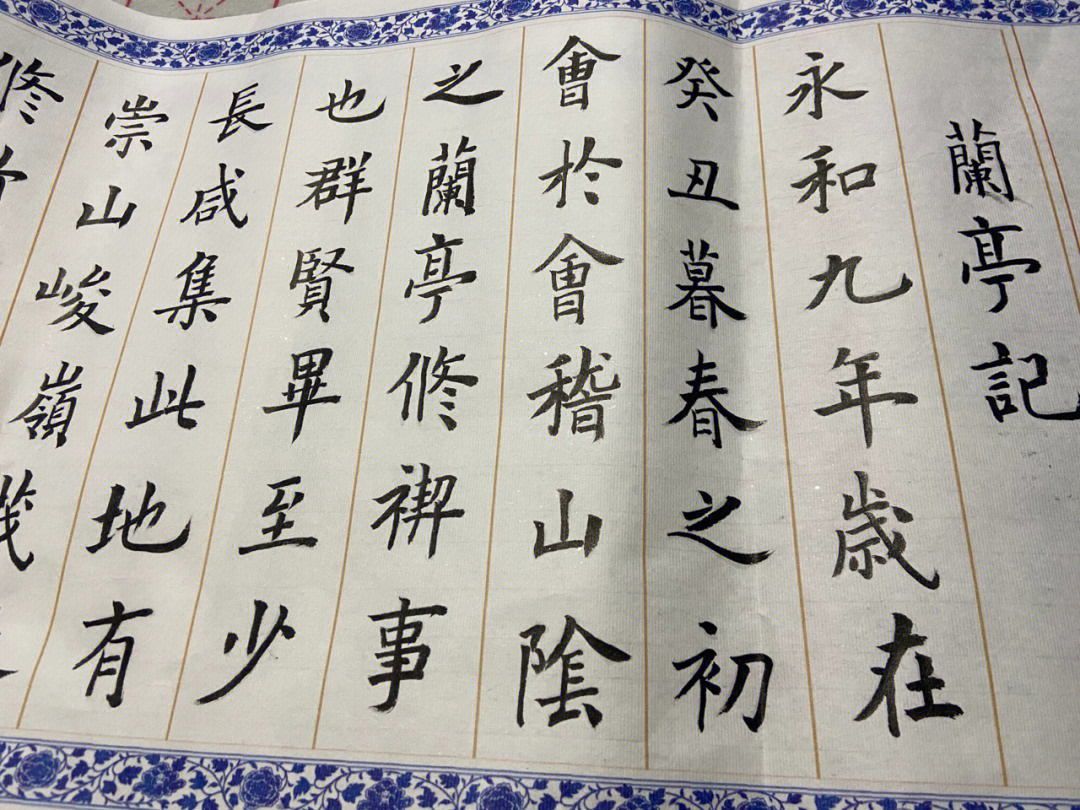 蘭亭記
永和九年歳在
癸丑暮春之初
會於會稽山陰
之蘭亭修禊事
也群賢畢至少
長咸集此地有
崇山峻嶺
修